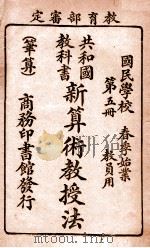 教育部審定
國民學校
春季始業
第五冊
教員用
共和國
教科書
新算術教授法
（筆算）
商務印書館發行
www.docin.com